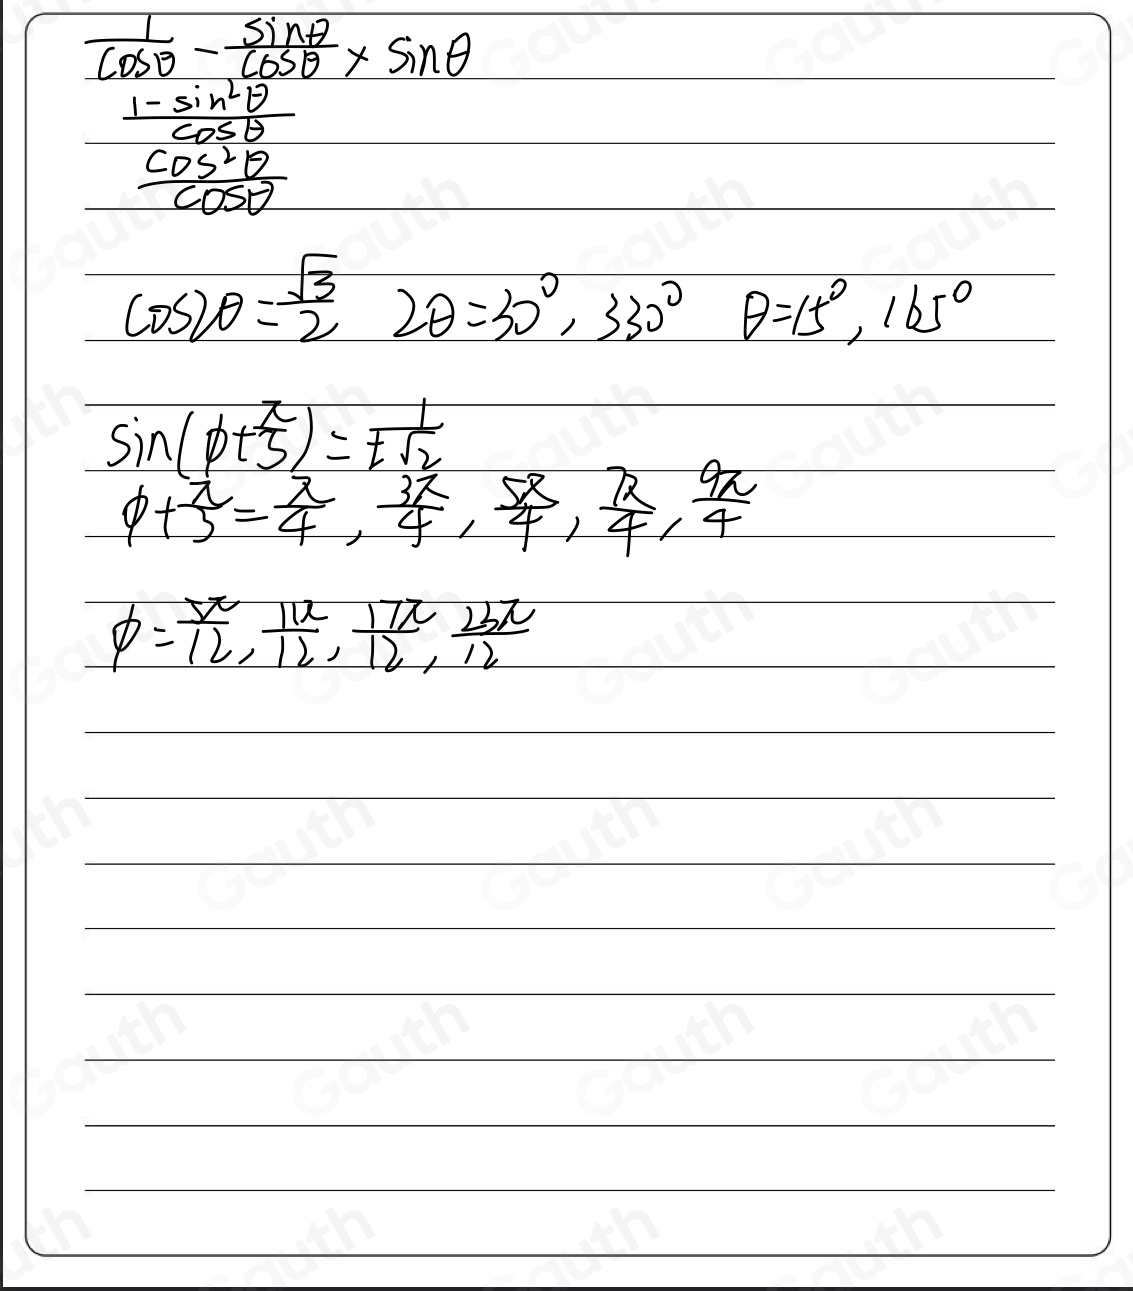 1/cosθ − sinθ/cosθ × sinθ
1 − sin²θ/cosθ
cos²θ/cosθ
cos2θ = √3/2 2θ = 30°, 330° θ = 15°, 165°
sin(φ + π/3) = ±1/√2
φ + π/3 = π/4, 3π/4, 5π/4, 7π/4, 9π/4
φ = 5π/12, 11π/12, 17π/12, 23π/12